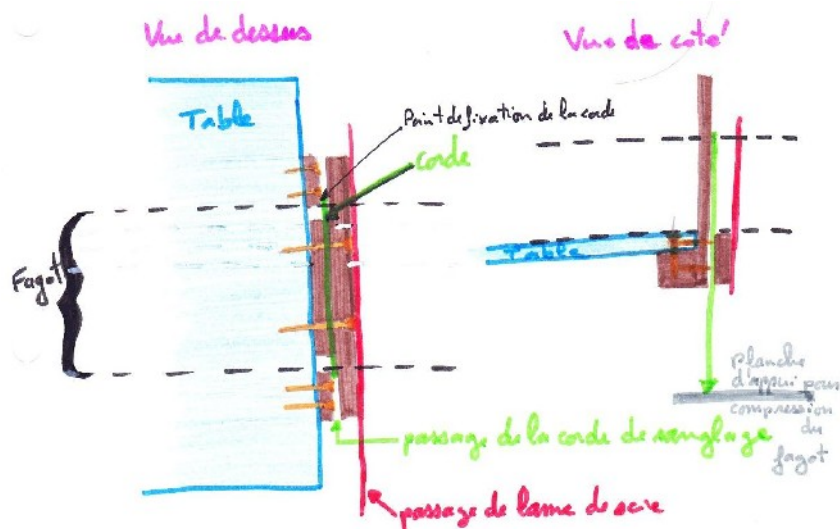 Vue de dessus
Vue de coté
Table
Point de fixation de la corde
corde
Fagot
Table
planche
d'appui pour
compression
du
fagot
passage de la corde de sanglage
passage de lame de scie